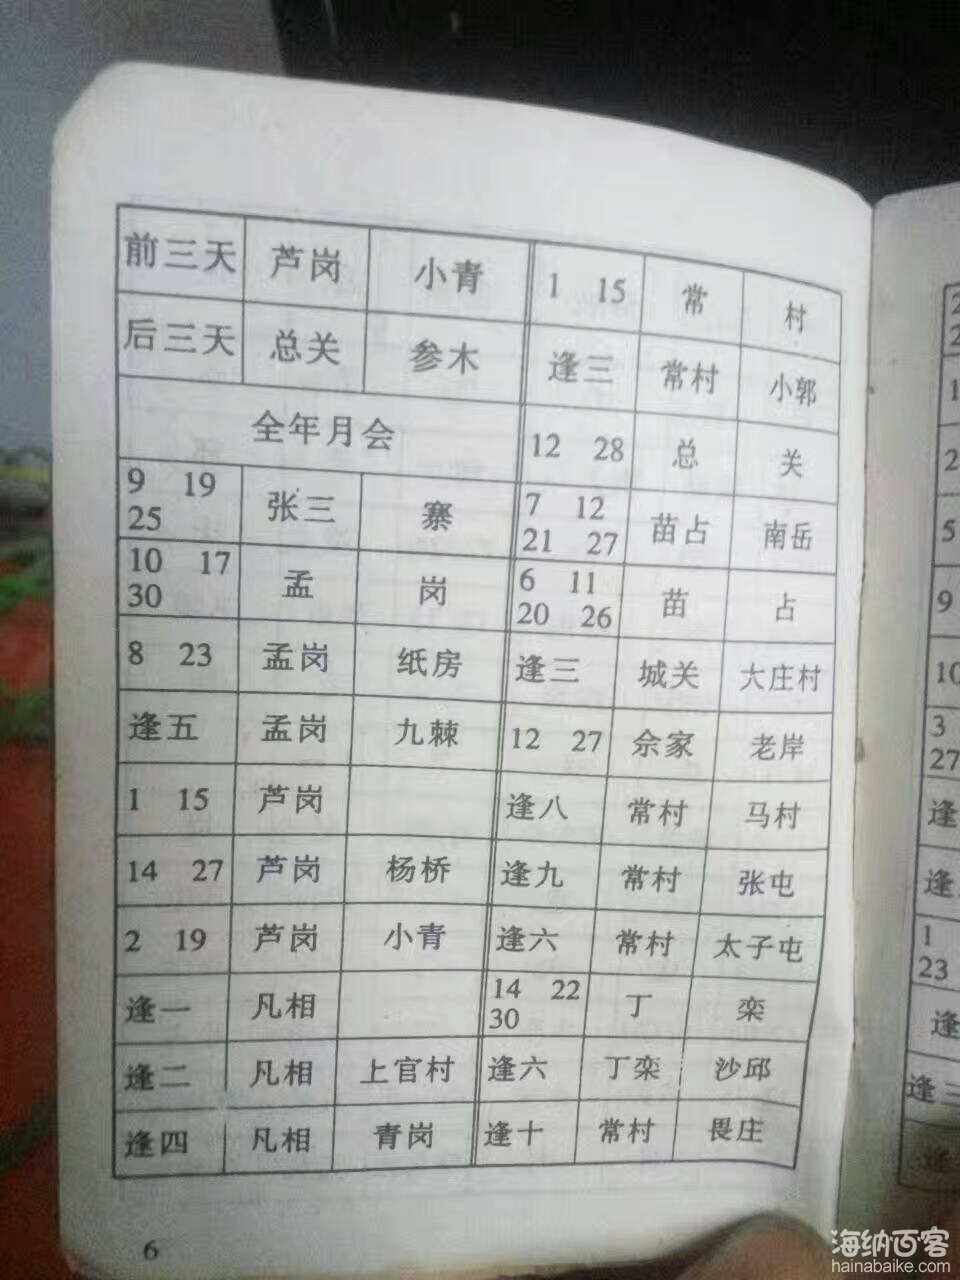 前三天 芦岗 小青
后三天 总关 参木
全年月会
9 19 25 张三 寨
10 17 30 孟 岗
8 23 孟岗 纸房
逢五 孟岗 九棘
1 15 芦岗
14 27 芦岗 杨桥
2 19 芦岗 小青
逢一 凡相
逢二 凡相 上官村
逢四 凡相 青岗
1 15 常 村
逢三 常村 小郭
12 28 总 关
7 12 21 27 苗占 南岳
6 11 20 26 苗 占
逢三 城关 大庄村
12 27 佘家 老岸
逢八 常村 马村
逢九 常村 张屯
逢六 常村 太子屯
14 22 30 丁 栾
逢六 丁栾 沙邱
逢十 常村 畏庄
6
9
10
3
27
逢
逢
1
23
逢
逢三
逢
海纳百客
hainabaike.com